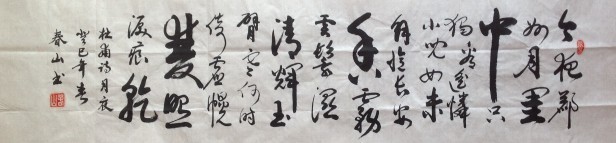 今夜鄜
州月閨
中只
獨看遥憐
小兒女未
解憶長安
香霧
雲鬟濕
清輝玉
臂寒何時
倚虛幌
雙照
淚痕乾
杜甫詩月夜
癸巳年春
春山書